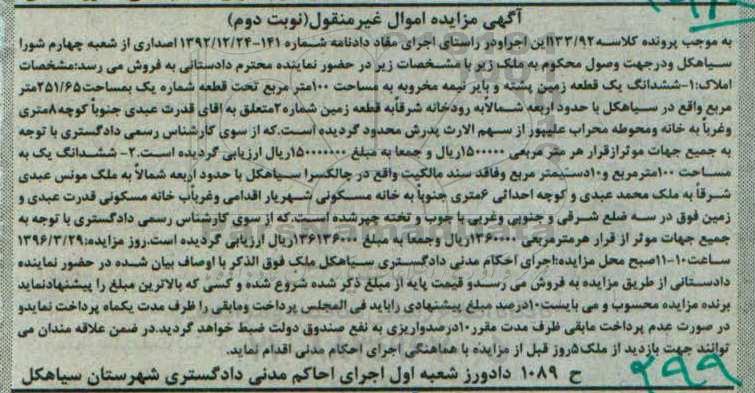 آگهی مزایده اموال غیرمنقول(نوبت دوم)
به موجب پرونده کلاسه۱۳۳/۹۲این اجراودر راستای اجرای مفاد دادنامه شماره ۱۴۱-۱۳۹۲/۱۲/۲۴اصداری از شعبه چهارم شورا
سیاهکل ودرجهت وصول محکوم به ملک زیر با مشخصات زیر در حضور نماینده محترم دادستانی به فروش می رسد:مشخصات
املاک:۱-ششدانگ یک قطعه زمین پشته و بایر نیمه مخروبه به مساحت ۱۰۰متر مربع تحت قطعه شماره یک بمساحت۲۵۱/۶۵متر
مربع واقع در سیاهکل با حدود اربعه شمالابه رودخانه شرقابه قطعه زمین شماره۲متعلق به اقای قدرت عبدی جنوبا کوچه۸متری
وغربا به خانه ومحوطه محراب علیپور از سهم الارث پدرش محدود گردیده است.که از سوی کارشناس رسمی دادگستری با توجه
به جمیع جهات موثرازقرار هر متر مربعی ۱۵۰۰۰۰۰ریال و جمعا به مبلغ ۱۵۰۰۰۰۰۰۰ریال ارزیابی گردیده است.۲- ششدانگ یک به
مساحت ۱۰۰مترمربع و۱۰دسیمتر مربع وفاقد سند مالکیت واقع در چالکسرا سیاهکل با حدود اربعه شمالاً به ملک مونس عبدی
شرقاً به ملک محمد عبدی و کوچه احداثی ۶متری جنوباً به خانه مسکونی شهریار اقدامی وغرباًب خانه مسکونی قدرت عبدی و
زمین فوق در سه ضلع شرقی و جنوبی وغربی با چوب و تخته چپرشده است.که از سوی کارشناس رسمی دادگستری با توجه به
جمیع جهات موثر از قرار هرمترمربعی ۱۳۶۰۰۰۰ریال وجمعا به مبلغ ۱۳۶۱۳۶۰۰۰ریال ارزیابی گردیده است.روز مزایده:۱۳۹۶/۳/۲۹
ساعت۱۰-۱۱صبح محل مزایده:اجرای احکام مدنی دادگستری سیاهکل ملک فوق الذکر با اوصاف بیان شده در حضور نماینده
دادستانی از طریق مزایده به فروش می رسدو قیمت پایه از مبلغ ذکر شده شروع شده و کسی که بالاترین مبلغ را پیشنهادنماید
برنده مزایده محسوب و می بایست۱۰درصد مبلغ پیشنهادی راباید فی المجلس پرداخت ومابقی را ظرف مدت یکماه پرداخت نمایدو
در صورت عدم پرداخت مابقی ظرف مدت مقرر۱۰درصدواریزی به نفع صندوق دولت ضبط خواهد گردید.در ضمن علاقه مندان می
توانند جهت بازدید از ملک۵روز قبل از مزایده با هماهنگی اجرای احکام مدنی اقدام نماید.
ح ۱۰۸۹ دادورز شعبه اول اجرای احاکم مدنی دادگستری شهرستان سیاهکل
۲۹۹